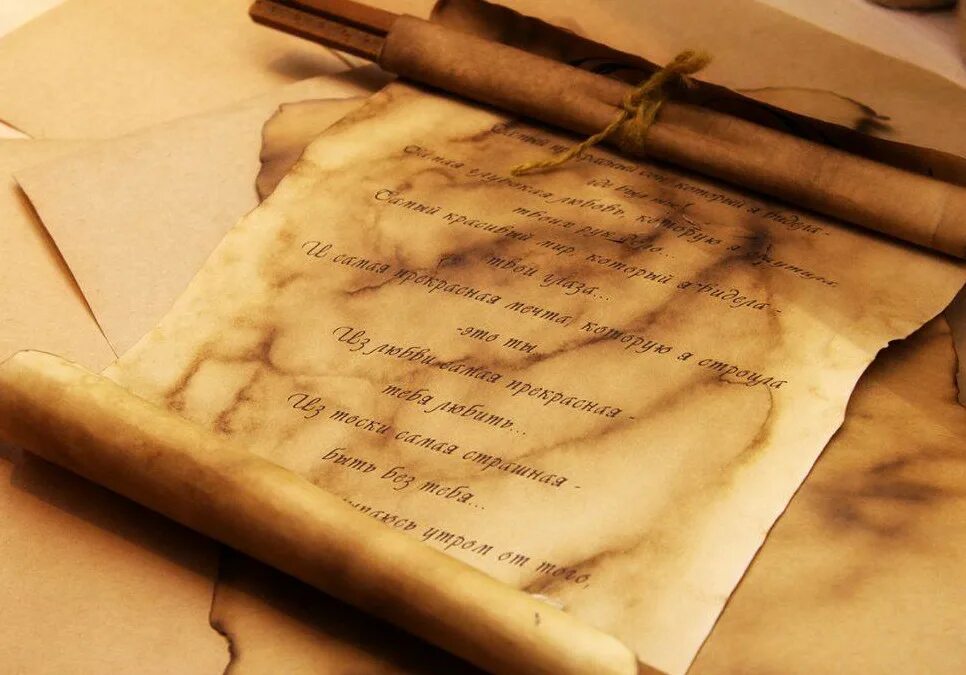 Самый прекрасный сон, который я видела -
где был
Самая глубокая любовь, которую я
твоих рук
Самый красивый мир, который я видела -
твои глаза...
И самая прекрасная мечта, которую я строила
-это ты
Из любви самая прекрасная -
тебя любить...
Из тоски самая страшная -
быть без тебя...
утром от того,